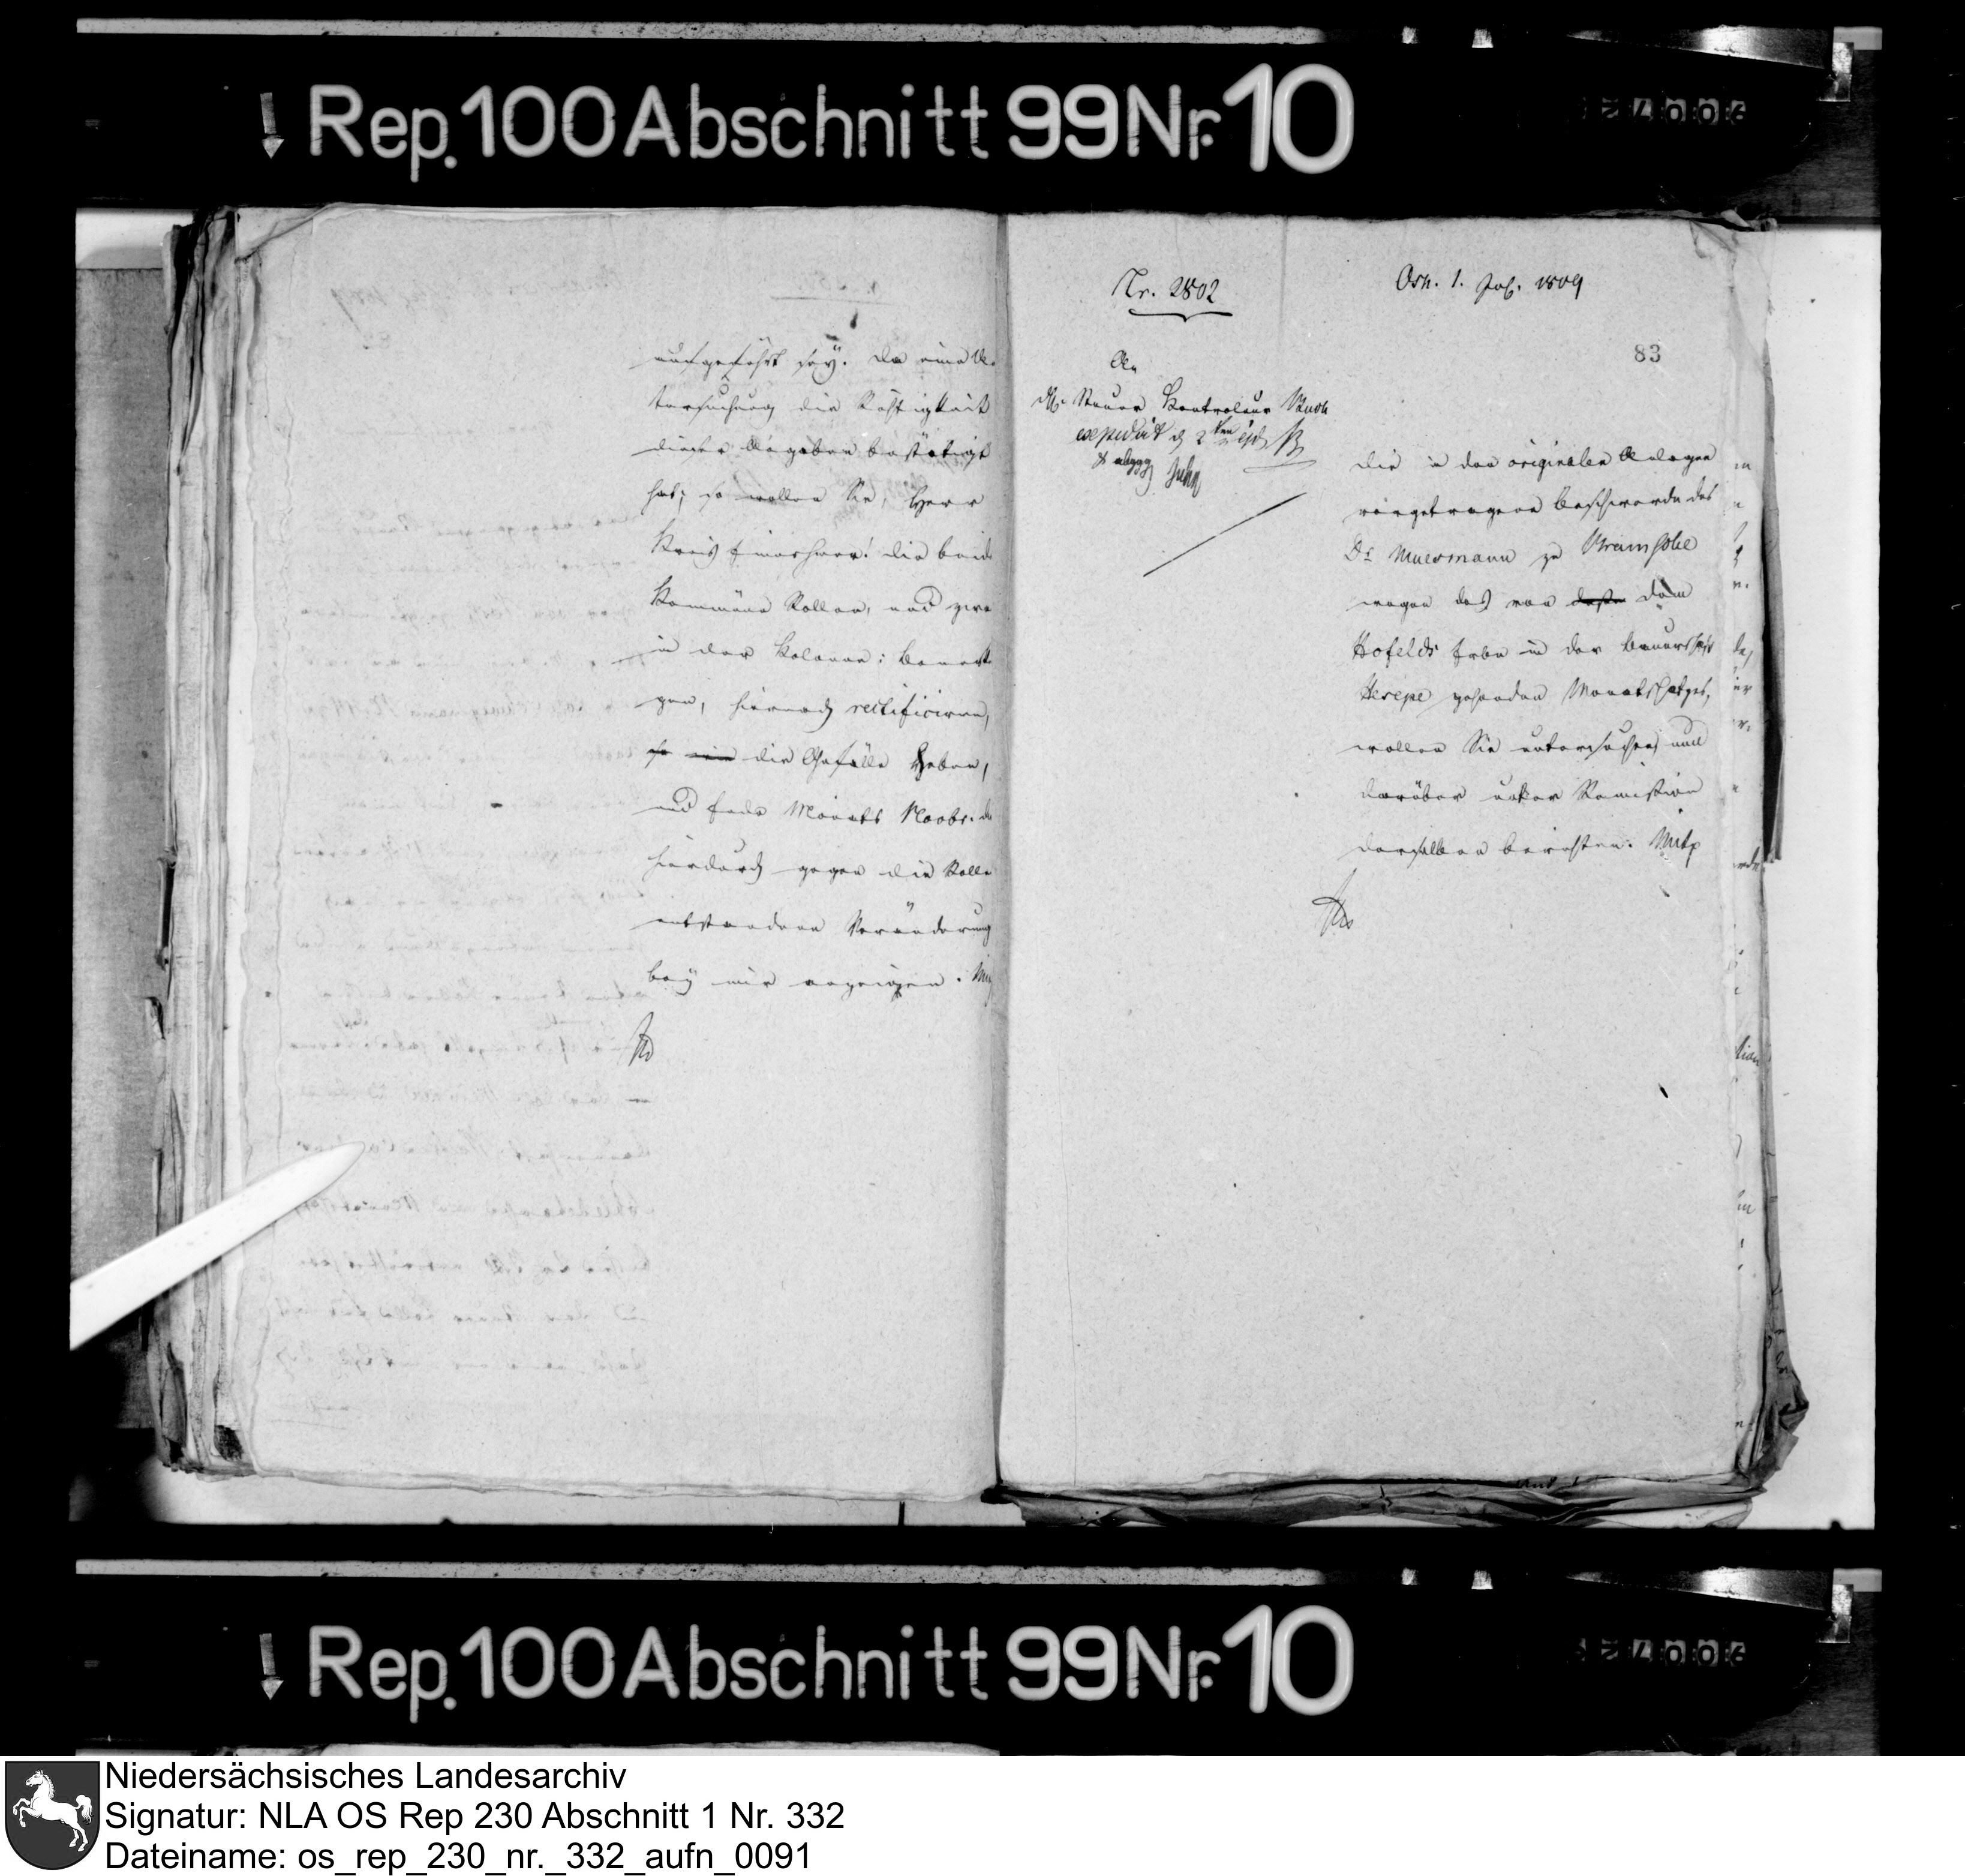 Rep. 100 Abschnitt 99 Nr. 10
aufgeführt sey. Da eine Un-
tersuchung die Richtigkeit
dieser Angaben bestätigt
hat; so wollen Sie, Herr
Kreis Einnehmer! die beide
Kommüne Rollen, und zwar
in der Kolonne: Bemerkun-
gen, hiernach rectificiren,
die Gefälle heben,
und Ende Monats Novbr. die
hierdurch gegen die Rolle
entstandene Veränderung
bey mir anzeigen.
Nr. 2802
Osn. 1. Jul. 1809
83
An
Steuer Kontroleur Buch
expedirt d 2ten ejd
Die in den originalen Anlagen
vorgetragene Beschwerde des
Dr Muermann zu Bramsche
wegen des von dem
Hofelds Erbe in der Bauerschaft
Hesepe gehenden Monatschatzes,
wollen Sie untersuchen, und
darüber unter Remission
derselben berichten.
Rep. 100 Abschnitt 99 Nr. 10
Niedersächsisches Landesarchiv
Signatur: NLA OS Rep 230 Abschnitt 1 Nr. 332
Dateiname: os_rep_230_nr._332_aufn_0091